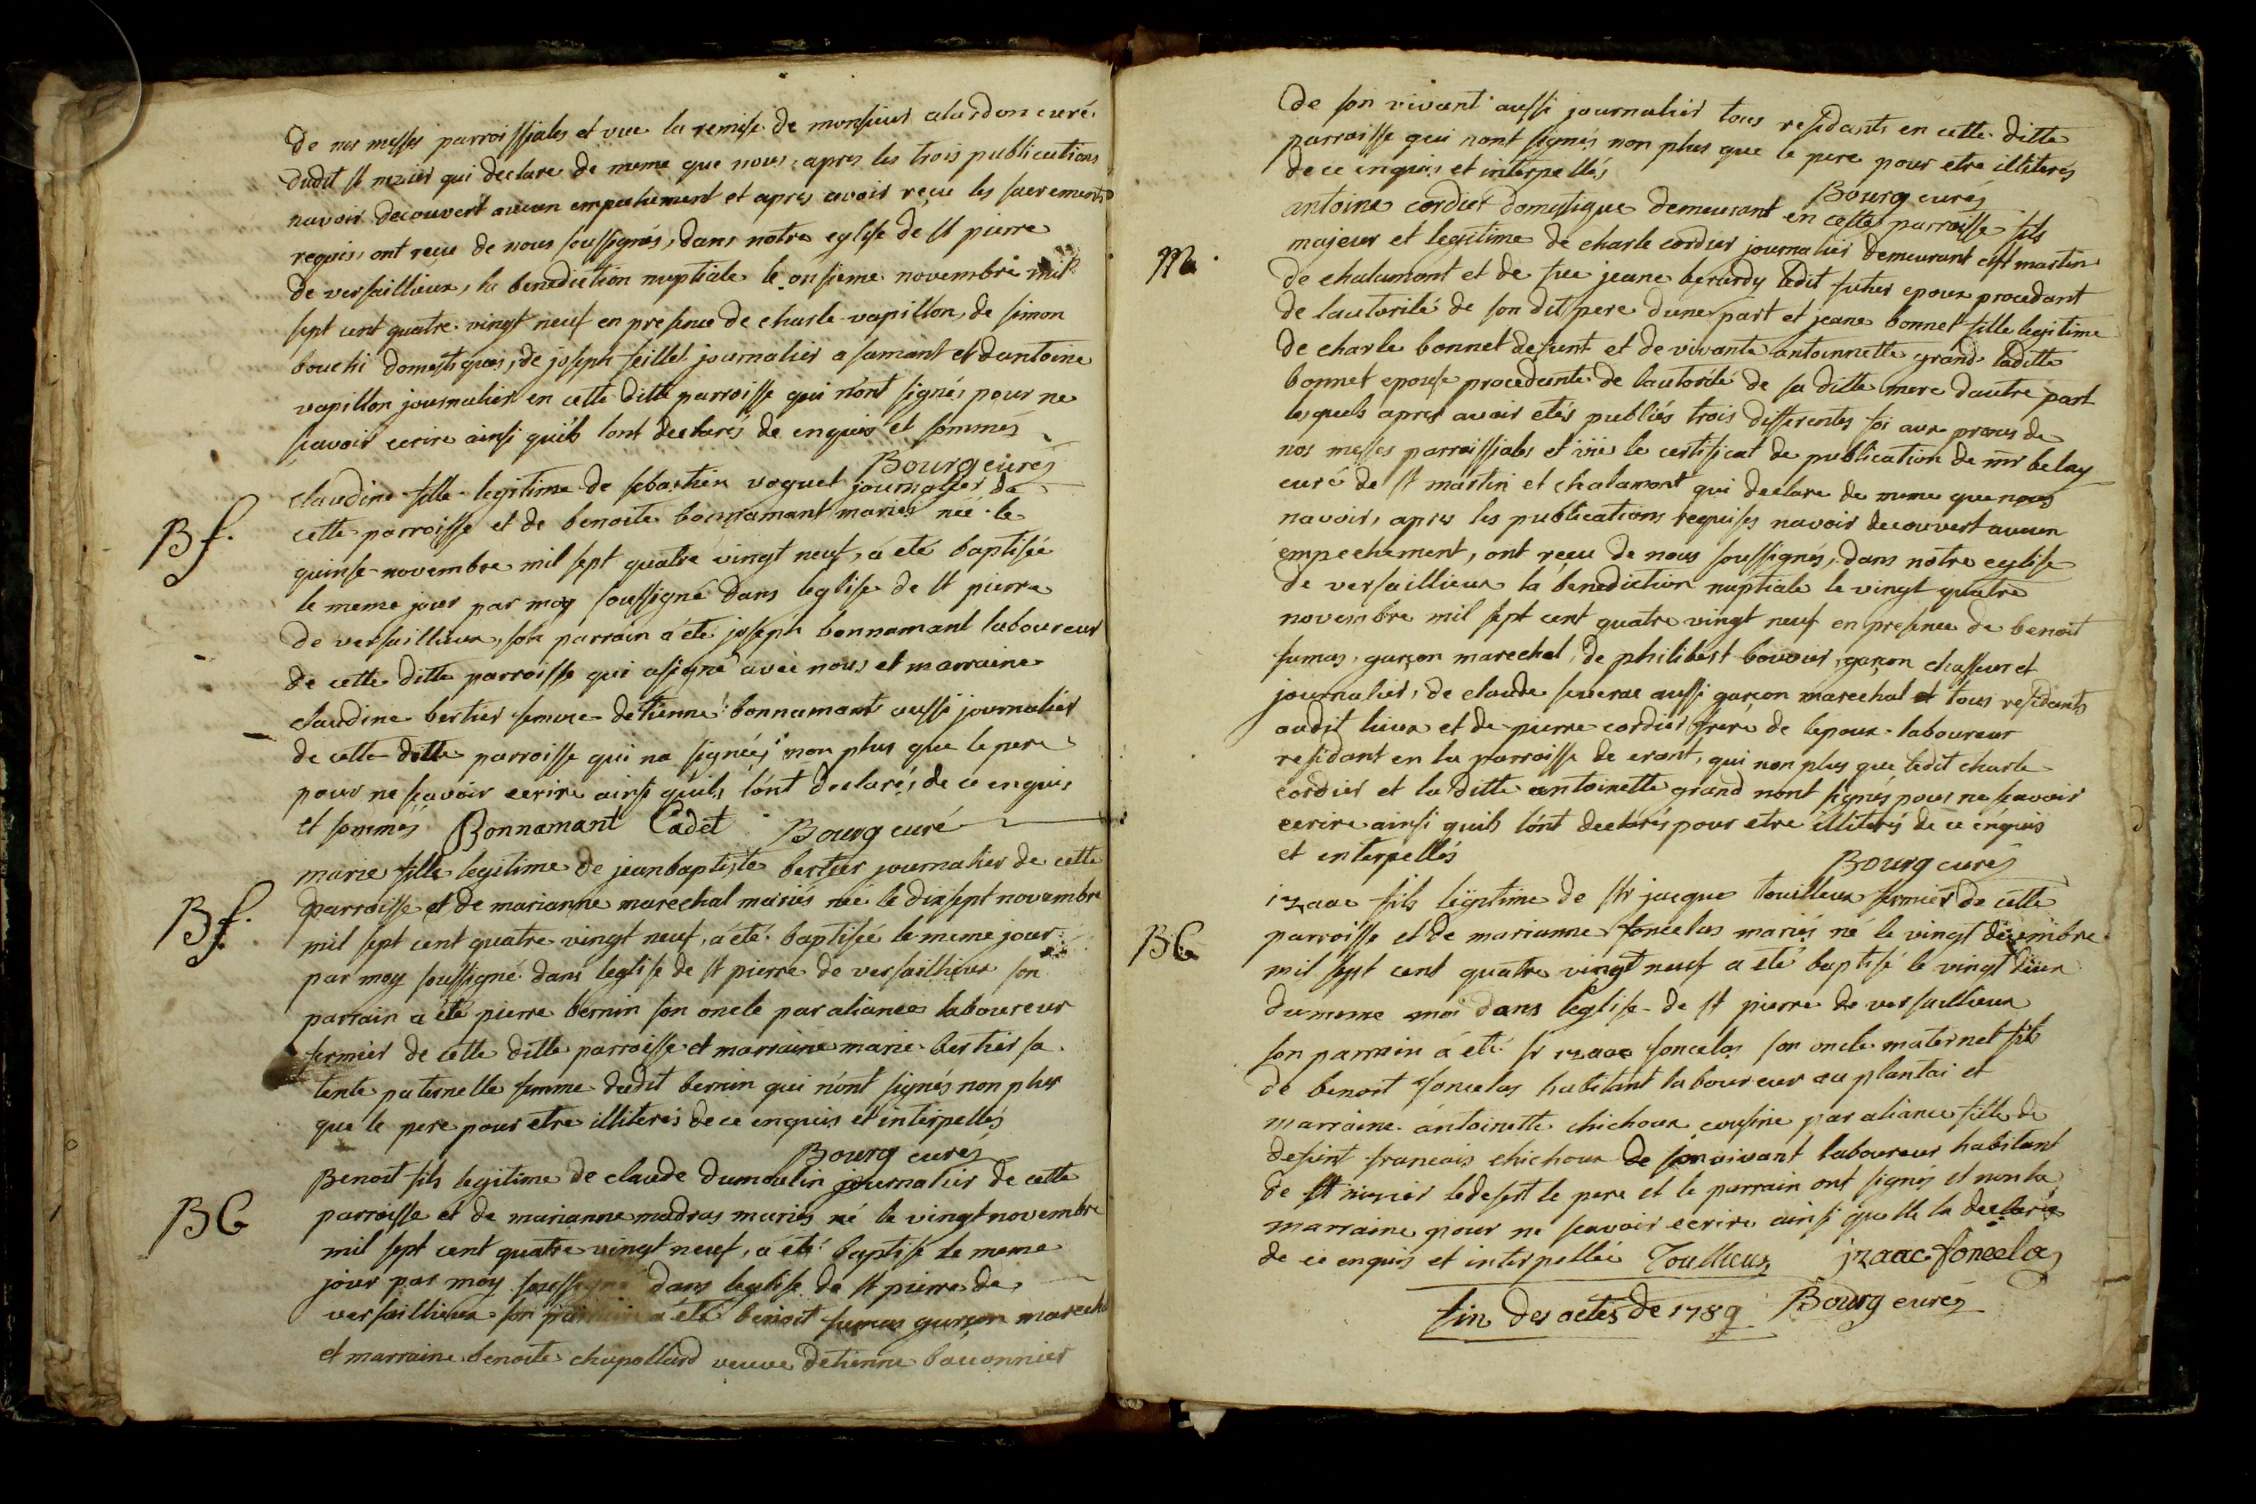 de nos messes parroissiales et vue la remise de monsieur alardon curé
dudit st nezier qui declare de meme que nous, apres les trois publications
navoir decouvert aucun empechement et apres avoir reçue les sacrements
requis, ont reçue de nous soussignés, dans notre eglise de st pierre
de versaillieux, la benediction nuptiale le onsieme novembre mil
sept cent quatre vingt neuf en presence de charle vapillon, de simon
bouchi domestiques, de joseph feillet journalier a samant et dantoine
vapillon journalier en cette ditte parroisse qui n'ont signés pour ne
scavoir ecrire ainsi quils lont declarés de enquis et sommés
Bourg curés
Bf.
claudine fille legitime de sebastien voguet journalier de
cette parroisse et de benoite bonnamant mariés née le
quinse novembre mil sept quatre vingt neuf, a eté baptisée
le meme jour par moy soussigné dans leglise de st pierre
de versaillieux, son parrain a eté joseph bonnamant laboureur
de cette ditte parroisse qui asigné avec nous et marraine
claudine bertier femme detienne bonnamant aussi journalier
de cette ditte parroisse qui na signées non plus que le pere
pour ne scavoir ecrire ainsi quils lont declarés de ce enquis
et sommés Bonnamant Cadet Bourg curé
Bf.
marie fille legitime de jeanbaptiste bertier journalier de cette
parroisse et de marianne marechal mariés née le dixsept novembre
mil sept cent quatre vingt neuf, a eté baptisée le meme jour
par moy soussigné dans leglise de st pierre de versaillieux son
parrain a eté pierre bernin son oncle par aliance laboureur
fermier de cette ditte parroisse et marraine marie bertier sa
tente paternelle femme dudit bernin qui n'ont signés non plus
que le pere pour etre illiterés de ce enquis et interpellés
Bourg curés
BG
Benoit fils legitime de claude dumoulin journalier de cette
parroisse et de marianne madras mariés né le vingt novembre
mil sept cent quatre vingt neuf, a eté baptisé le meme
jour par moy soussigné dans leglise de st pierre de
versaillieux son parrain a eté benoit fumas garçon marechal
et marraine benoite chapollard veuve detienne bauonnier
de son vivant aussi journalier tous residants en cette ditte
parroisse qui nont signés non plus que le pere pour etre illiterés
de ce enquis et interpellés
Bourg curés
M.
antoine cordier domestique demeurant en cette parroisse fils
majeur et legitime de charle cordier journalier demeurant a st martin
de chalamont et de feu jeane berardy ledit futur epoux procedant
de lautorité de son dit pere dune part et jeane bonnet fille legitime
de charle bonnet defunt et de vivante antoinnette grand laditte
bonnet epouse procedente de lautorité de sa ditte mere dautre part
lesquels apres avoir etés publiés trois differentes foi aux prones de
nos messes parroissiales et vüe le certificat de publication de mr belay
curé de st martin et chalamont qui declare de meme que nous
navoir, apres les publications requises navoir decouvert aucun
empechement, ont reçue de nous soussignés, dans notre eglise
de versaillieux la benediction nuptiale le vingt quatre
novembre mil sept cent quatre vingt neuf en presence de benoit
fumas, garçon marechal, de philibert bouvur, garçon chasseur et
journalier, de claude severac aussi garçon marechal et tous residants
audit lieux et de pierre cordier frere de lepoux laboureur
residant en la parroisse de crant, qui non plus que ledit charle
cordier et la ditte antoinette grand n'ont signés pour ne scavoir
ecrire ainsi quils lont declarés pour etre illiterés de ce enquis
et interpellés
Bourg curés
BG
izaac fils legitime de sr jacque touilleux fermier de cette
parroisse et de marianne foncelas mariés né le vingt decembre
mil sept cent quatre vingt neuf a eté baptisé le vingt deux
du meme moi dans leglise de st pierre de versaillieux
son parrain a eté sr izaac foncelas son oncle maternel fils
de benoit foncelas habitant laboureur au plantai et
marraine antoinette chichoux cousine par aliance fille de
defunt francois chichoux de son vivant laboureur habitant
de st nizier ledesert le pere et le parrain ont signés et non la
marraine pour ne scavoir ecrire ainsi quelle la declarée
de ce enquis et interpellée Toulleux izaac foncelas
fin des actes de 1789 Bourg curés